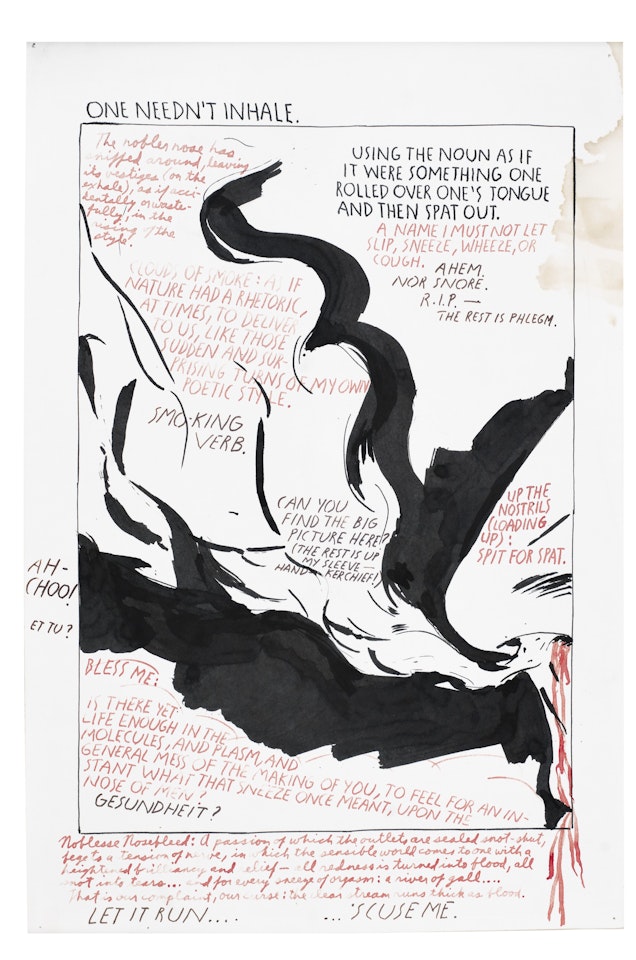 ONE NEEDN'T INHALE.
The nobler nose has
sniffed around, leaving
its vestiges (on the
exhale), as if acci-
dentally or waste-
fully, in the
rising of the
style.
USING THE NOUN AS IF
IT WERE SOMETHING ONE
ROLLED OVER ONE'S TONGUE
AND THEN SPAT OUT.
A NAME I MUST NOT LET
SLIP, SNEEZE, WHEEZE, OR
COUGH. AHEM.
NOR SNORE.
R.I.P. —
THE REST IS PHLEGM.
CLOUDS OF SMOKE: AS IF
NATURE HAD A RHETORIC,
AT TIMES, TO DELIVER
TO US, LIKE THOSE
SUDDEN AND SUR-
PRISING TURNS OF MY OWN
POETIC STYLE.
SMO-KING
VERB.
CAN YOU
FIND THE BIG
PICTURE HERE?
(THE REST IS UP
MY SLEEVE—
HAND-KERCHIEF!)
UP THE
NOSTRILS
(LOADING
UP):
SPIT FOR SPAT.
AH-
CHOO!
ET TU?
BLESS ME:
IS THERE YET
LIFE ENOUGH IN THE
MOLECULES, AND PLASM, AND
GENERAL MESS OF THE MAKING OF YOU, TO FEEL FOR AN IN-
STANT WHAT THAT SNEEZE ONCE MEANT, UPON THE
NOSE OF MEN?
GESUNDHEIT?
Noblesse Nosebleed: A passion of which the outlets are sealed snot-shut,
begets a tension of nerve, in which the sensible world comes to one with a
heightened brilliancy and relief — all redness is turned into blood, all
snot into tears... and for every sneeze of orgasm: a river of gall....
That is our complaint, our curse: the clear stream runs thick as blood.
LET IT RUN.... ...'SCUSE ME.